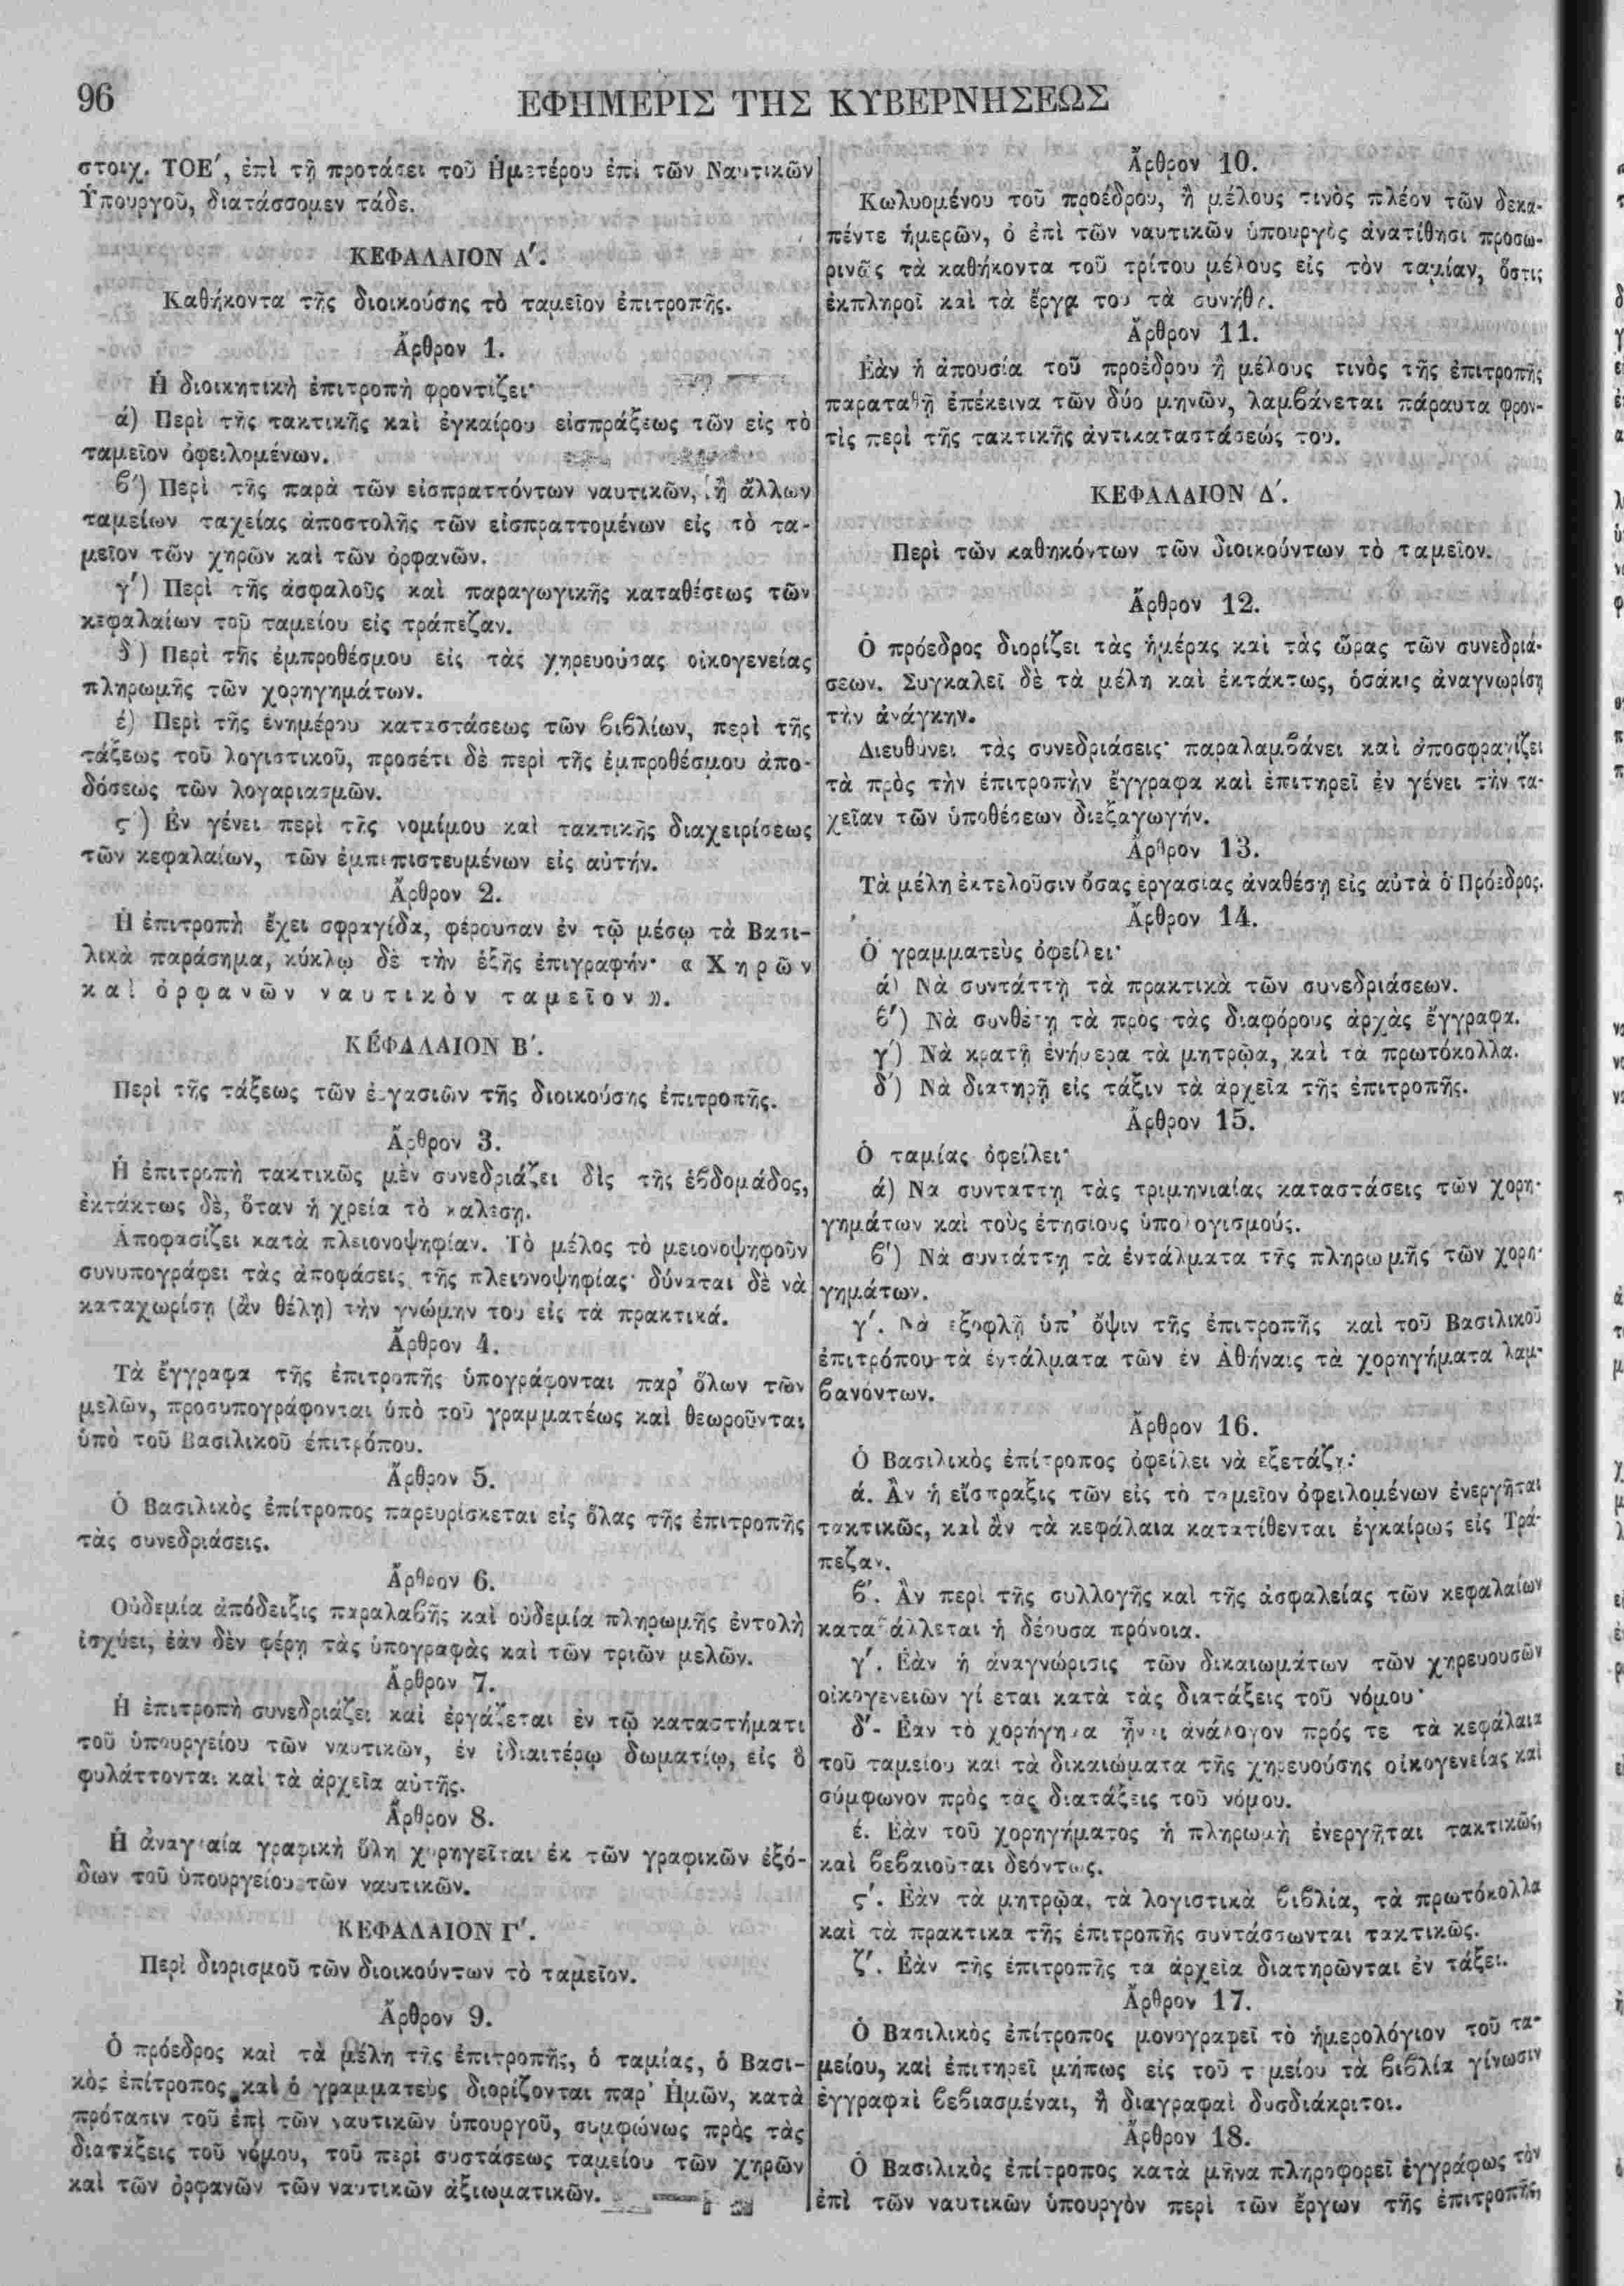 96
ΕΦΗΜΕΡΙΣ ΤΗΣ ΚΥΒΕΡΝΗΣΕΩΣ
στοιχ. ΤΟΕ΄, ἐπὶ τῇ προτάσει τοῦ Ἡμετέρου ἐπὶ τῶν Ναυτικῶν
Ὑπουργοῦ, διατάσσομεν τάδε.
ΚΕΦΑΛΑΙΟΝ Α΄.
Καθήκοντα τῆς διοικούσης τὸ ταμεῖον ἐπιτροπῆς.
Ἄρθρον 1.
Ἡ διοικητικὴ ἐπιτροπὴ φροντίζει·
ά) Περὶ τῆς τακτικῆς καὶ ἐγκαίρου εἰσπράξεως τῶν εἰς τὸ
ταμεῖον ὀφειλομένων.
β΄) Περὶ τῆς παρὰ τῶν εἰσπραττόντων ναυτικῶν, ἢ ἄλλων
ταμείων ταχείας ἀποστολῆς τῶν εἰσπραττομένων εἰς τὸ τα-
μεῖον τῶν χηρῶν καὶ τῶν ὀρφανῶν.
γ΄) Περὶ τῆς ἀσφαλοῦς καὶ παραγωγικῆς καταθέσεως τῶν
κεφαλαίων τοῦ ταμείου εἰς τράπεζαν.
δ΄) Περὶ τῆς ἐμπροθέσμου εἰς τὰς χηρευούσας οἰκογενείας
πληρωμῆς τῶν χορηγημάτων.
έ) Περὶ τῆς ἐνημέρου καταστάσεως τῶν βιβλίων, περὶ τῆς
τάξεως τοῦ λογιστικοῦ, προσέτι δὲ περὶ τῆς ἐμπροθέσμου ἀπο-
δόσεως τῶν λογαριασμῶν.
ς΄) Ἐν γένει περὶ τῆς νομίμου καὶ τακτικῆς διαχειρίσεως
τῶν κεφαλαίων, τῶν ἐμπεπιστευμένων εἰς αὐτήν.
Ἄρθρον 2.
Ἡ ἐπιτροπὴ ἔχει σφραγίδα, φέρουσαν ἐν τῷ μέσῳ τὰ Βασι-
λικὰ παράσημα, κύκλῳ δὲ τὴν ἑξῆς ἐπιγραφήν· « Χηρῶν
καὶ ὀρφανῶν ναυτικὸν ταμεῖον ».
ΚΕΦΑΛΑΙΟΝ Β΄.
Περὶ τῆς τάξεως τῶν ἐργασιῶν τῆς διοικούσης ἐπιτροπῆς.
Ἄρθρον 3.
Ἡ ἐπιτροπὴ τακτικῶς μὲν συνεδριάζει δὶς τῆς ἑβδομάδος,
ἐκτάκτως δὲ, ὅταν ἡ χρεία τὸ καλέσῃ.
Ἀποφασίζει κατὰ πλειονοψηφίαν. Τὸ μέλος τὸ μειονοψηφοῦν
συνυπογράφει τὰς ἀποφάσεις τῆς πλειονοψηφίας· δύναται δὲ νὰ
καταχωρίσῃ (ἂν θέλῃ) τὴν γνώμην του εἰς τὰ πρακτικά.
Ἄρθρον 4.
Τὰ ἔγγραφα τῆς ἐπιτροπῆς ὑπογράφονται παρ᾿ ὅλων τῶν
μελῶν, προσυπογράφονται ὑπὸ τοῦ γραμματέως καὶ θεωροῦνται
ὑπὸ τοῦ Βασιλικοῦ ἐπιτρόπου.
Ἄρθρον 5.
Ὁ Βασιλικὸς ἐπίτροπος παρευρίσκεται εἰς ὅλας τῆς ἐπιτροπῆς
τὰς συνεδριάσεις.
Ἄρθρον 6.
Οὐδεμία ἀπόδειξις παραλαβῆς καὶ οὐδεμία πληρωμῆς ἐντολὴ
ἰσχύει, ἐὰν δὲν φέρῃ τὰς ὑπογραφὰς καὶ τῶν τριῶν μελῶν.
Ἄρθρον 7.
Ἡ ἐπιτροπὴ συνεδριάζει καὶ ἐργάζεται ἐν τῷ καταστήματι
τοῦ ὑπουργείου τῶν ναυτικῶν, ἐν ἰδιαιτέρῳ δωματίῳ, εἰς ὃ
φυλάττονται καὶ τὰ ἀρχεῖα αὐτῆς.
Ἄρθρον 8.
Ἡ ἀναγκαία γραφικὴ ὕλη χορηγεῖται ἐκ τῶν γραφικῶν ἐξό-
δων τοῦ ὑπουργείου τῶν ναυτικῶν.
ΚΕΦΑΛΑΙΟΝ Γ΄.
Περὶ διορισμοῦ τῶν διοικούντων τὸ ταμεῖον.
Ἄρθρον 9.
Ὁ πρόεδρος καὶ τὰ μέλη τῆς ἐπιτροπῆς, ὁ ταμίας, ὁ Βασι-
κὸς ἐπίτροπος καὶ ὁ γραμματεὺς διορίζονται παρ᾿ Ἡμῶν, κατὰ
πρότασιν τοῦ ἐπὶ τῶν ναυτικῶν ὑπουργοῦ, συμφώνως πρὸς τὰς
διατάξεις τοῦ νόμου, τοῦ περὶ συστάσεως ταμείου τῶν χηρῶν
καὶ τῶν ὀρφανῶν τῶν ναυτικῶν ἀξιωματικῶν.
Ἄρθρον 10.
Κωλυομένου τοῦ προέδρου, ἢ μέλους τινὸς πλέον τῶν δεκα-
πέντε ἡμερῶν, ὁ ἐπὶ τῶν ναυτικῶν ὑπουργὸς ἀνατίθησι προσω-
ρινῶς τὰ καθήκοντα τοῦ τρίτου μέλους εἰς τὸν ταμίαν, ὅστις
ἐκπληροῖ καὶ τὰ ἔργα του τὰ συνήθη.
Ἄρθρον 11.
Ἐὰν ἡ ἀπουσία τοῦ προέδρου ἢ μέλους τινὸς τῆς ἐπιτροπῆς
παραταθῇ ἐπέκεινα τῶν δύο μηνῶν, λαμβάνεται πάραυτα φρον-
τὶς περὶ τῆς τακτικῆς ἀντικαταστάσεώς του.
ΚΕΦΑΛΑΙΟΝ Δ΄.
Περὶ τῶν καθηκόντων τῶν διοικούντων τὸ ταμεῖον.
Ἄρθρον 12.
Ὁ πρόεδρος διορίζει τὰς ἡμέρας καὶ τὰς ὥρας τῶν συνεδριά-
σεων. Συγκαλεῖ δὲ τὰ μέλη καὶ ἐκτάκτως, ὁσάκις ἀναγνωρίσῃ
τὴν ἀνάγκην.
Διευθύνει τὰς συνεδριάσεις· παραλαμβάνει καὶ ἀποσφραγίζει
τὰ πρὸς τὴν ἐπιτροπὴν ἔγγραφα καὶ ἐπιτηρεῖ ἐν γένει τὴν τα-
χεῖαν τῶν ὑποθέσεων διεξαγωγήν.
Ἄρθρον 13.
Τὰ μέλη ἐκτελοῦσιν ὅσας ἐργασίας ἀναθέσῃ εἰς αὐτὰ ὁ Πρόεδρος.
Ἄρθρον 14.
Ὁ γραμματεὺς ὀφείλει·
ά) Νὰ συντάττῃ τὰ πρακτικὰ τῶν συνεδριάσεων.
β΄) Νὰ συνθέτῃ τὰ πρὸς τὰς διαφόρους ἀρχὰς ἔγγραφα.
γ΄) Νὰ κρατῇ ἐνήμερα τὰ μητρῷα, καὶ τὰ πρωτόκολλα.
δ΄) Νὰ διατηρῇ εἰς τάξιν τὰ ἀρχεῖα τῆς ἐπιτροπῆς.
Ἄρθρον 15.
Ὁ ταμίας ὀφείλει·
ά) Νὰ συντάττῃ τὰς τριμηνιαίας καταστάσεις τῶν χορη-
γημάτων καὶ τοὺς ἐτησίους ὑπολογισμούς.
β΄) Νὰ συντάττῃ τὰ ἐντάλματα τῆς πληρωμῆς τῶν χορη-
γημάτων.
γ΄. Νὰ ἐξοφλῇ ὑπ᾿ ὄψιν τῆς ἐπιτροπῆς καὶ τοῦ Βασιλικοῦ
ἐπιτρόπου τὰ ἐντάλματα τῶν ἐν Ἀθήναις τὰ χορηγήματα λαμ-
βανόντων.
Ἄρθρον 16.
Ὁ Βασιλικὸς ἐπίτροπος ὀφείλει νὰ ἐξετάζῃ·
ά. Ἂν ἡ εἴσπραξις τῶν εἰς τὸ ταμεῖον ὀφειλομένων ἐνεργῆται
τακτικῶς, καὶ ἂν τὰ κεφάλαια κατατίθενται ἐγκαίρως εἰς Τρά-
πεζαν.
β΄. Ἂν περὶ τῆς συλλογῆς καὶ τῆς ἀσφαλείας τῶν κεφαλαίων
καταβάλλεται ἡ δέουσα πρόνοια.
γ΄. Ἐὰν ἡ ἀναγνώρισις τῶν δικαιωμάτων τῶν χηρευουσῶν
οἰκογενειῶν γίνεται κατὰ τὰς διατάξεις τοῦ νόμου·
δ΄- Ἐὰν τὸ χορήγημα ἦναι ἀνάλογον πρός τε τὰ κεφάλαια
τοῦ ταμείου καὶ τὰ δικαιώματα τῆς χηρευούσης οἰκογενείας καὶ
σύμφωνον πρὸς τὰς διατάξεις τοῦ νόμου.
έ. Ἐὰν τοῦ χορηγήματος ἡ πληρωμὴ ἐνεργῆται τακτικῶς,
καὶ βεβαιοῦται δεόντως.
ς΄. Ἐὰν τὰ μητρῷα, τὰ λογιστικὰ βιβλία, τὰ πρωτόκολλα
καὶ τὰ πρακτικα τῆς ἐπιτροπῆς συντάσσωνται τακτικῶς.
ζ΄. Ἐὰν τῆς ἐπιτροπῆς τα ἀρχεῖα διατηρῶνται ἐν τάξει.
Ἄρθρον 17.
Ὁ Βασιλικὸς ἐπίτροπος μονογραφεῖ τὸ ἡμερολόγιον τοῦ τα-
μείου, καὶ ἐπιτηρεῖ μήπως εἰς τοῦ ταμείου τὰ βιβλία γίνωσιν
ἐγγραφαὶ βεβιασμέναι, ἢ διαγραφαὶ δυσδιάκριτοι.
Ἄρθρον 18.
Ὁ Βασιλικὸς ἐπίτροπος κατὰ μῆνα πληροφορεῖ ἐγγράφως τὸν
ἐπὶ τῶν ναυτικῶν ὑπουργὸν περὶ τῶν ἔργων τῆς ἐπιτροπῆς,